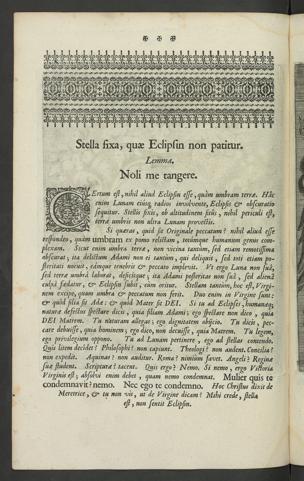 Stella fixa, quæ Eclipsin non patitur.
Lemma.
Noli me tangere.
CErtum est, nihil aliud Eclipsin esse, quàm umbram terræ. Hâc
enim Lunam ejusq; radios involvente, Eclipsis & obscuratio
sequitur. Stellis fixis, ob altitudinem situs, nihil periculi est,
terræ umbris non ultra Lunam provectis.
Si quæras, quid sit Originale peccatum? nihil aliud esse
respondeo, quàm umbram ex pomo relictam, totumque humanum genus com-
plexam. Sicut enim umbra terræ, non vicina tantùm, sed etiam remotissima
obscurat; ita delictum Adami non ei tantùm, qui deliquit, sed toti etiam po-
steritati nocuit, eámque tenebris & peccato implevit. Ut ergo Luna non suâ,
sed terræ umbrâ laborat, deficitque; ita Adami posteritas non suâ, sed alienâ
culpâ fœdatur, & Eclipsin subit, cùm oritur. Stellam tamen, hoc est, Virgi-
nem excipe, quam umbra & peccatum non ferit. Duo enim in Virgine sunt:
& quòd filia sit Adæ: & quòd Mater sit DEI. Si tu ad Eclipses, humanæq;
naturæ defectus spectare dicis, quia filiam Adami; ego spectare non dico, quia
DEI Matrem. Tu naturam allegas: ego dignitatem objicio. Tu dicis, pec-
care debuisse, quia hominem; ego dico, non decuisse, quia Matrem. Tu legem,
ego privilegium oppono. Tu ad Lunam pertinere, ego ad stellas contendo.
Quis litem decidet? Philosophi? non capiunt. Theologi? non audent. Concilia?
non expedit. Aquinas? non auditur. Roma? nimiùm favet. Angeli? Reginæ
suæ student. Scriptura? tacent. Quis ergo? Nemo. Si nemo, ergo Victoria
Virginis est; absolvi enim debet, quam nemo condemnat. Mulier quis te
condemnavit? nemo. Nec ego te condemno. Hoc Christus dixit de
Meretrice, & tu non vis, ut de Virgine dicam? Mihi crede, stella
est, non sentit Eclipsin.